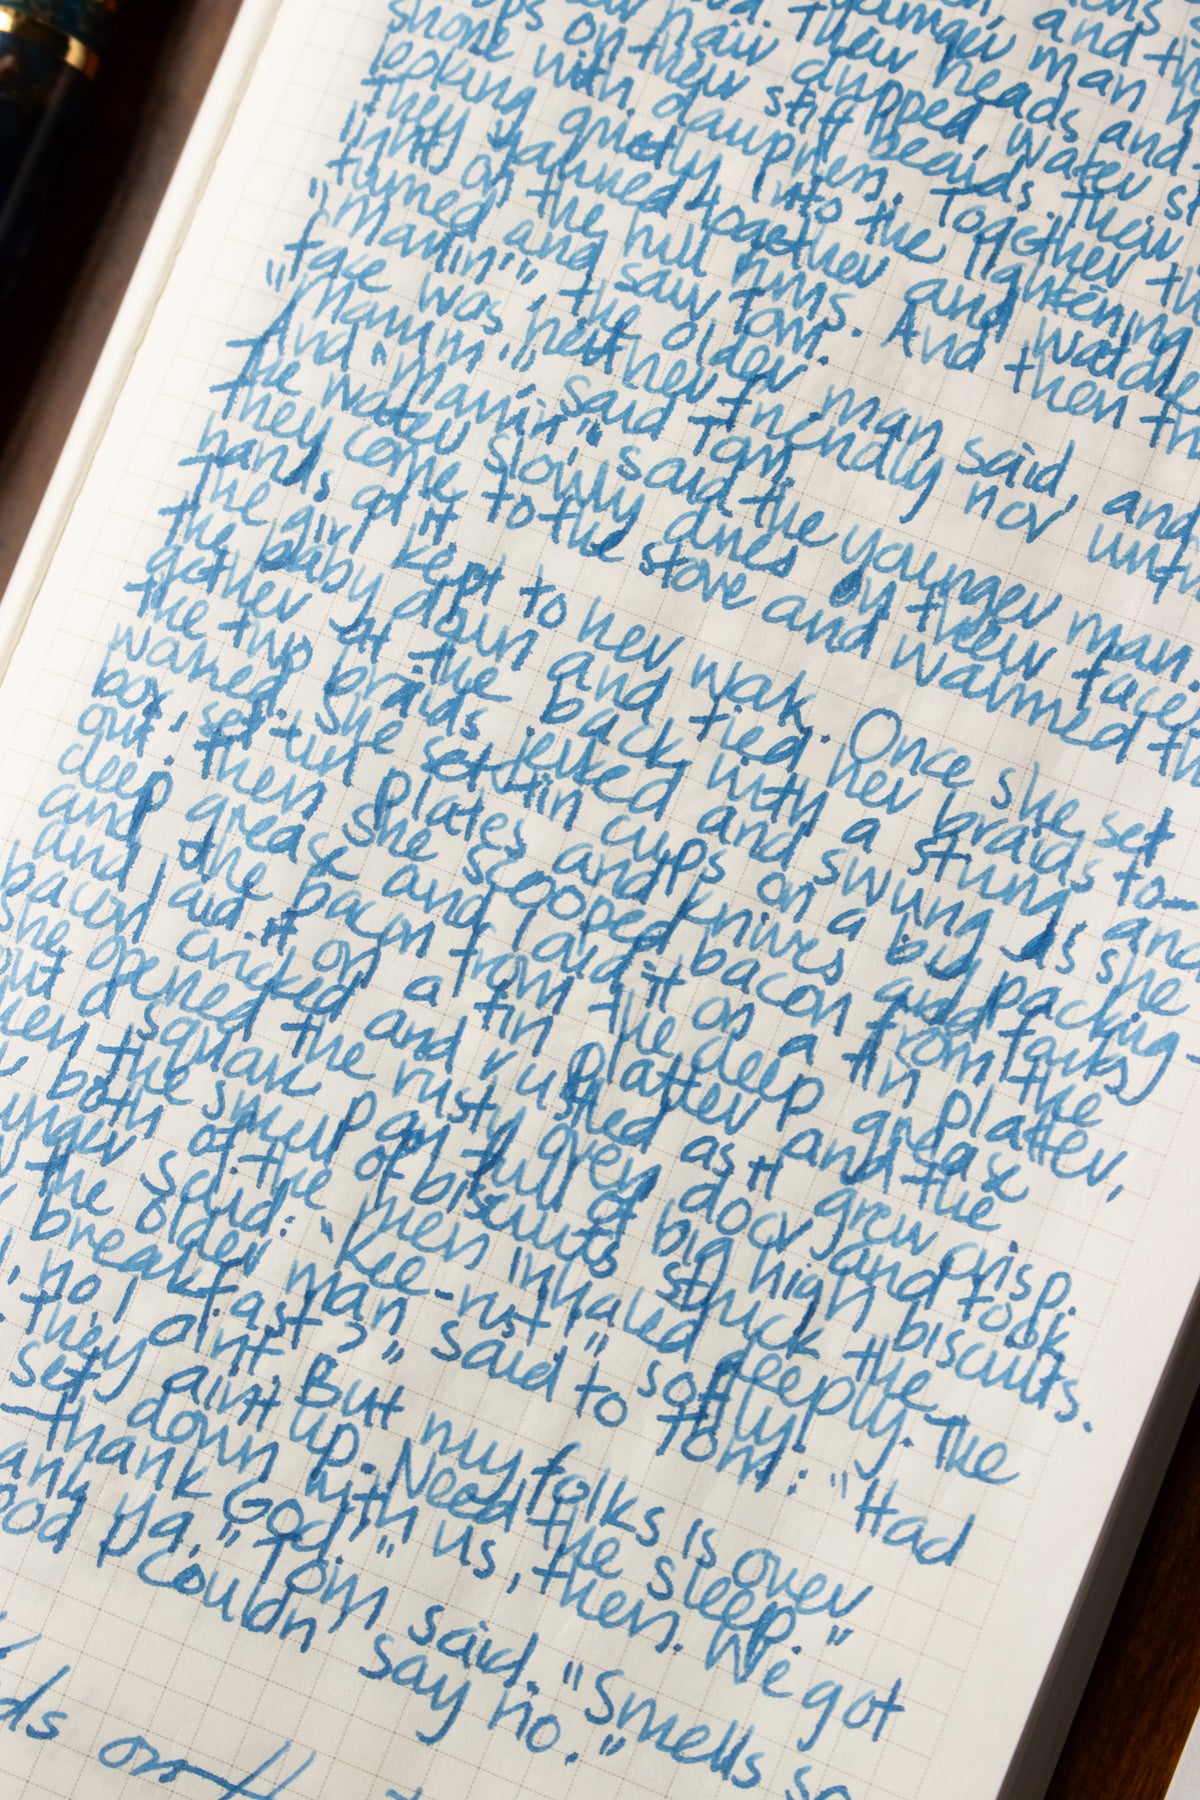 and th
younger man h
Their heads and
hair dripped water
ops on their stiff beards. Their
shone with dampness. Together th
looking quietly into the lightening
They yawned together and watche
light on the hill rims. And then th
turned and saw Tom.
"Mornin'", the older man said, and
face was neither friendly nor unfr
"Mornin'" said Tom.
And "Mornin'" said the younger man.
the water slowly dries on their faces
they come to the stove and warmed th
hands at it.
The girl kept to her wok. Once she set
the baby down and tied her braids to—
gether at the back with a string, and
the two braids jerked and swung as she
worked. She set tin cups on a big packing—
box, set tin plates and knives and forks
out. Then she scooped bacon from the
deep grease and laid it on a tin platter,
and the bacon from the deep grease
and laid it on a tin platter and the
bacon cricked and rustled as it grew crisp.
she opened the rusty oven door and took
out a square pan full of big high biscuits.
hen the smell of biscuits struck the
both of the men inhaled deeply. The
unger said: "Kee-rist!" softly.
the older man said to Tom: "Had
breakfast?"
no, I aint. But my folks is over
they aint up. Need the sleep."
set down with us, then. We got
—thank God!"
ank ya." Tom said. "Smells so
ood I couldn' say no."